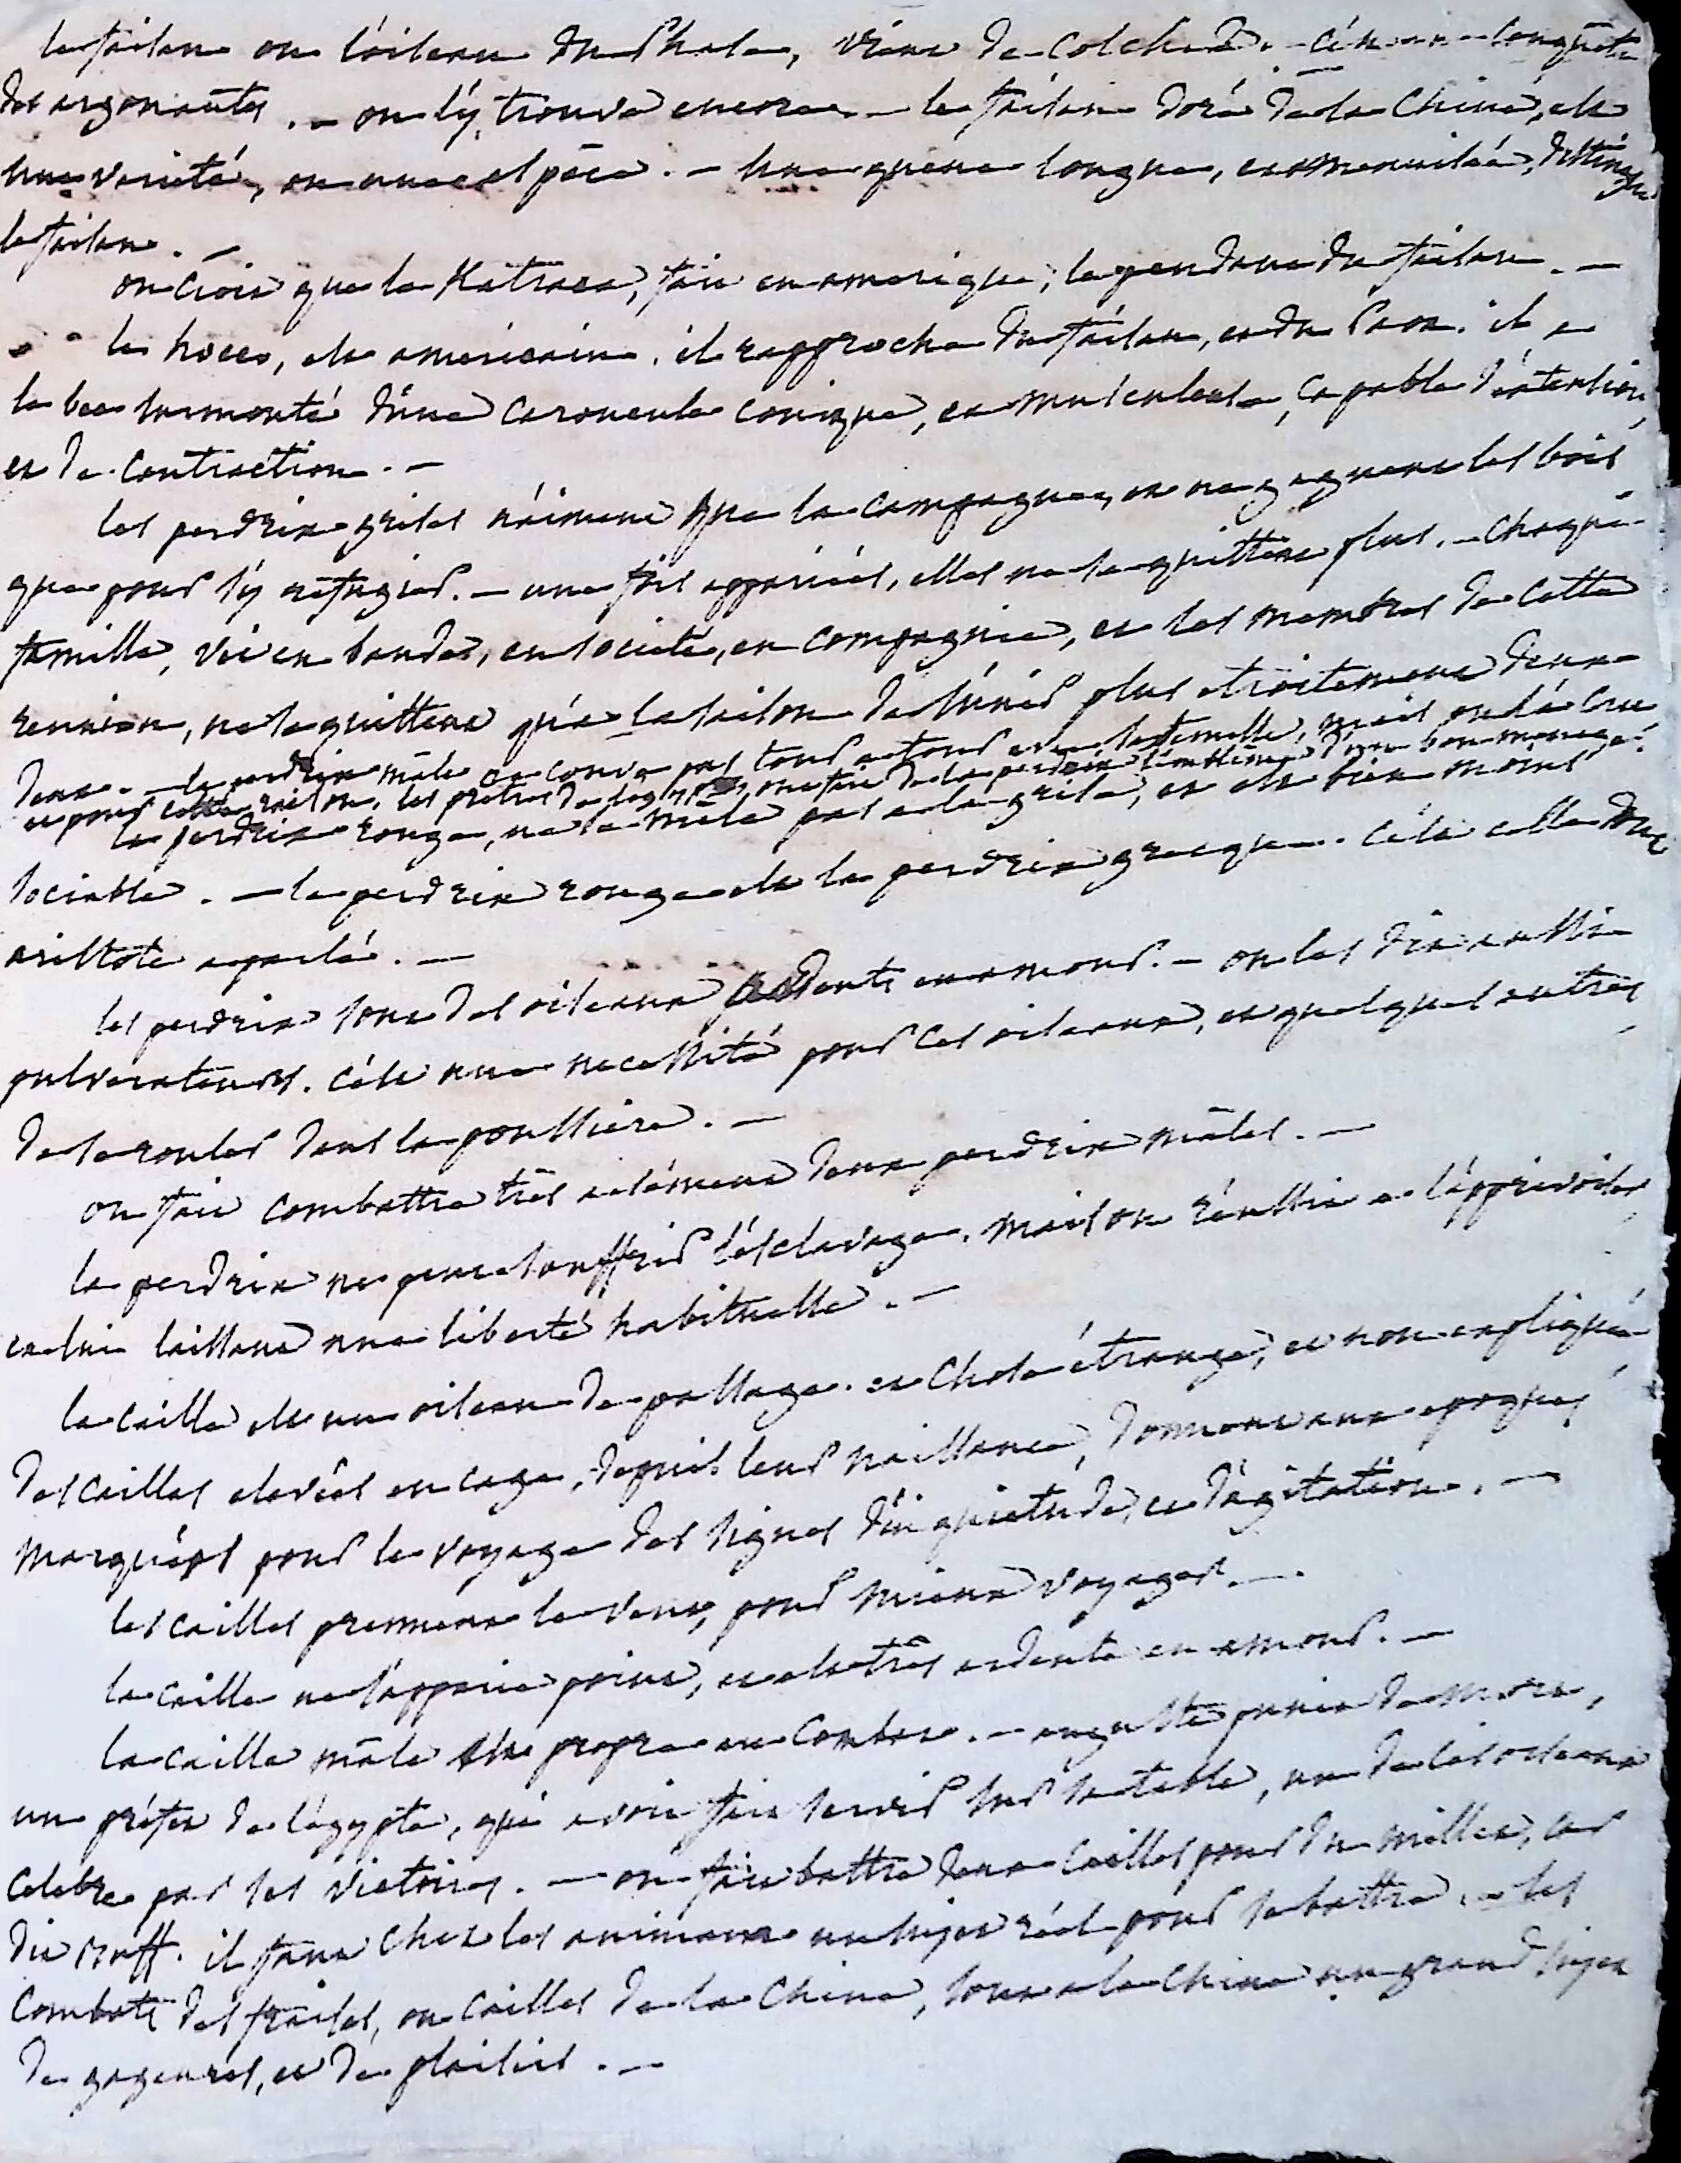 le faisan ou l'oiseau du Phase, vient de Colchide. - c'est une conquête
des argonautes. - on l'y trouve encore. - le faisan doré de la Chine, est
une varieté, ou une espèce. - une queue longue, et etagée, distingue
le faisan. -
on croit que le Katraca, fait en amerique, le pendant du faisan. -
le hocco, est americain. il rapproche du faisan, et du Paon. il a
le bec surmonté d'une caroncule conique, et musculeuse, capable d'extension,
et de contraction. -
les perdrix grises n'aiment que la campagne, et ne gagnent les bois
que pour s'y refugier. - une fois appariées, elles ne se quittent plus. - chaque
famille, vit en bandes, en societé, en compagnie, et les membres de cette
reunion, ne se quittent qu'a la saison de s'unir plus etroitement deux a
deux. - le perdrix mâle ne couve pas tour a tour avec la femelle, mais on l'a cru
et pour cette raison, les prêtres de l'egypte, ont fait de la perdrix l'emblême d'un bon menage.
la perdrix rouge, ne se mêle pas a la grise, et est bien moins
sociable. - la perdrix rouge est la perdrix grecque. c'est celle dont
aristote a parlé. -
les perdrix sont des oiseaux ardents en amour. - on les dit aussi
pulverateurs. c'est une necessité pour ces oiseaux, et quelques autres
de se rouler dans la poussiere. -
on fait combattre très aisément deux perdrix mâles. -
la perdrix ne peut souffrir l'esclavage. mais on réussit a l'apprivoiser
en lui laissant une liberté habituelle. -
la caille est un oiseau de passage. et chose étrange, et non expliquée
des cailles elevées en cage, depuis leur naissance, donnent aux epoques
marquées pour le voyage des signes d'inquietude, et d'agitation. -
les cailles prennent le vent, pour mieux voyager. -
la caille ne s'apparie point, et est très ardente en amour. -
la caille mâle est propre au combat. - auguste punit de mort,
un préfet de l'egypte, qui avoit fait servir sur sa table, un de ces oiseaux
celebre par ses victoires. - on fait battre deux cailles pour du millet, car
dit Buff. il faut chez les animaux un sujet réel pour se battre. - les
combats des fraises, ou cailles de la Chine, sont a la Chine un grand sujet
de gageures, et de plaisirs. -